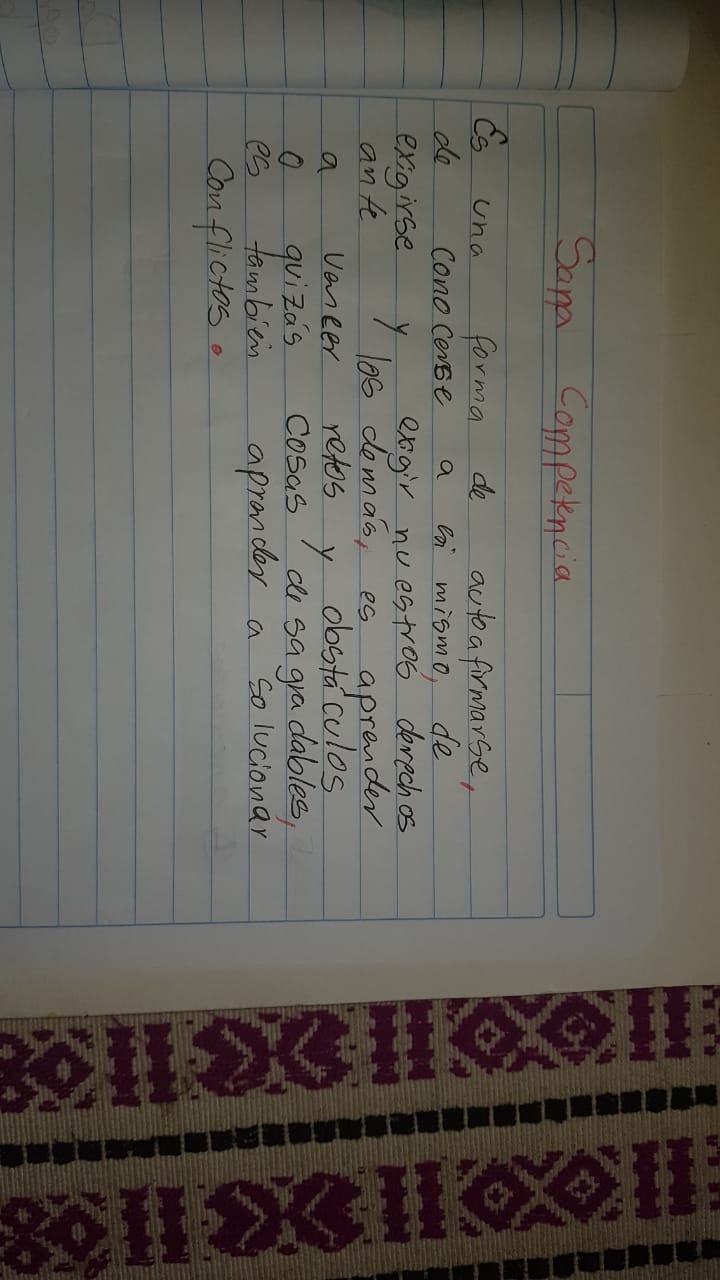 Sana Competencia
Es una forma de autoafirmarse,
de conocerse a si mismo, de
exigirse y exigir nuestros derechos
ante los demás, es aprender
a vencer retos y obstáculos
o quizás cosas desagradables,
es también aprender a solucionar
conflictos.